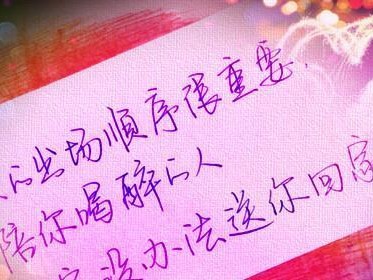 的出场顺序很重要,
陪你喝醉的人
没办法送你回